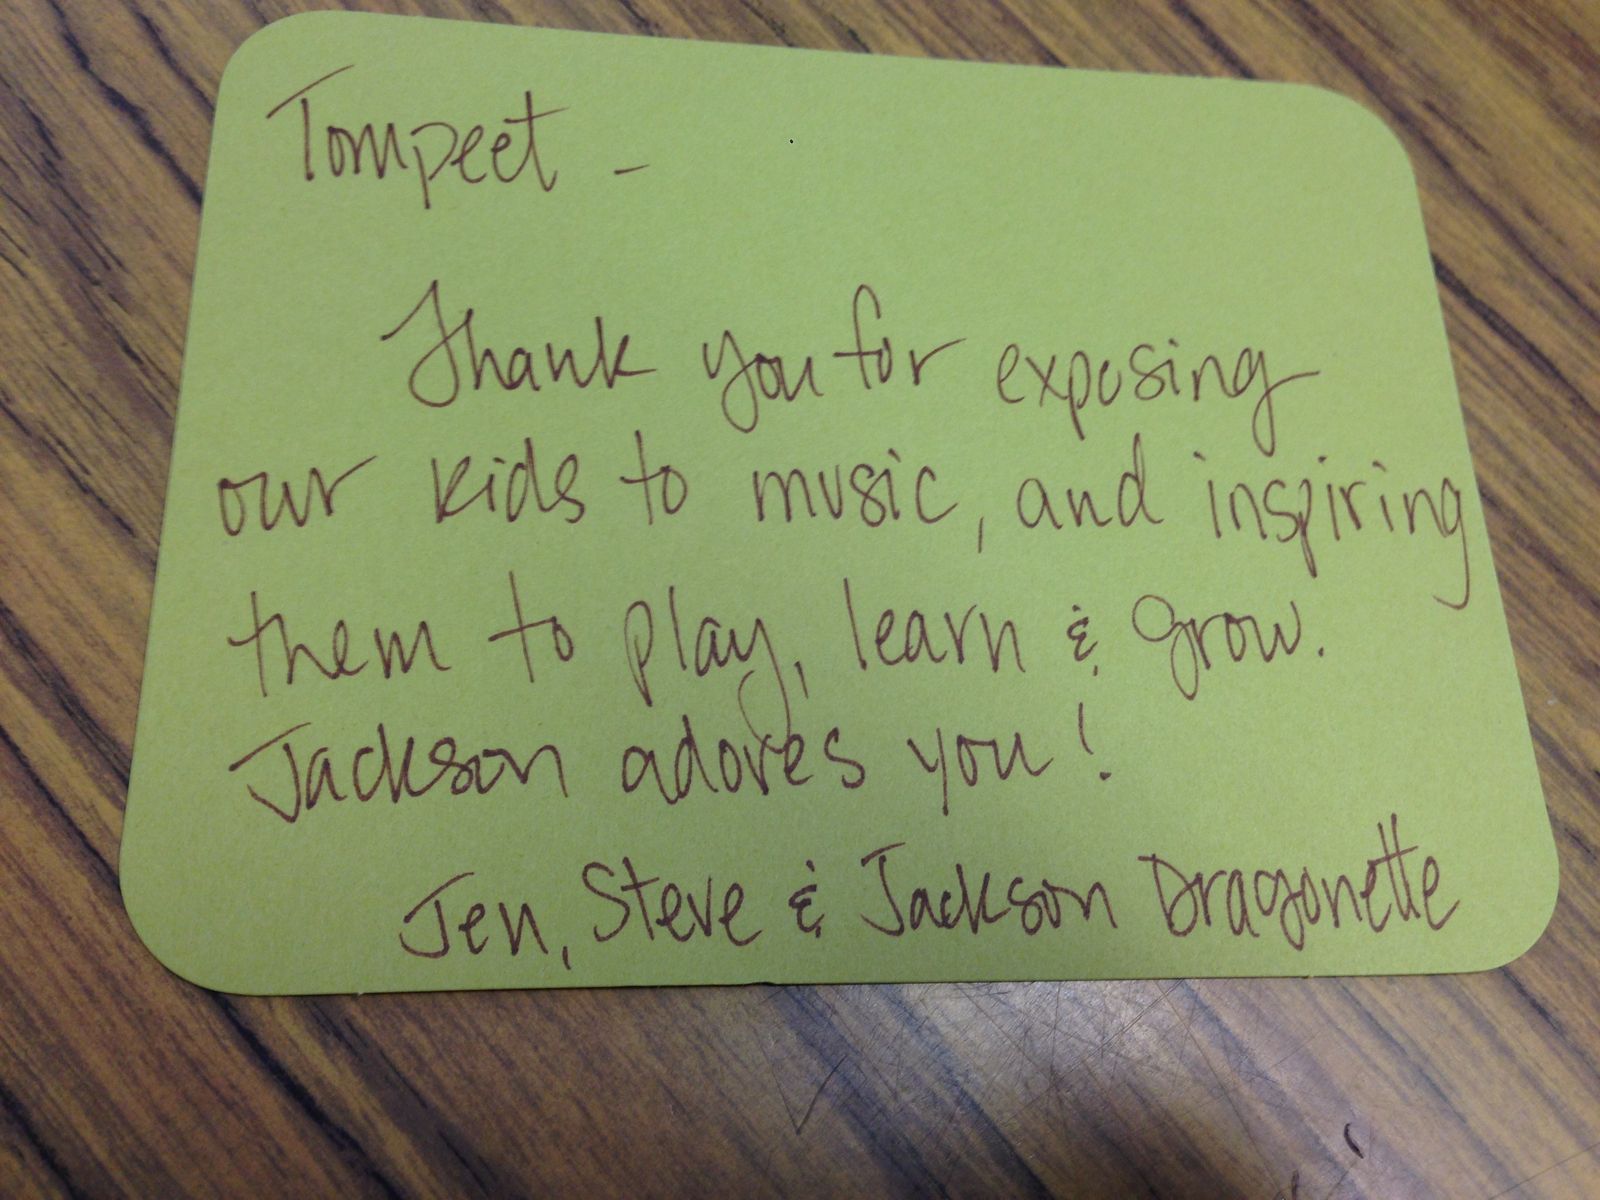 Tompeet -
Thank you for exposing
our kids to music, and inspiring
them to play, learn & grow.
Jackson adores you!
Jen, Steve & Jackson Dragonette